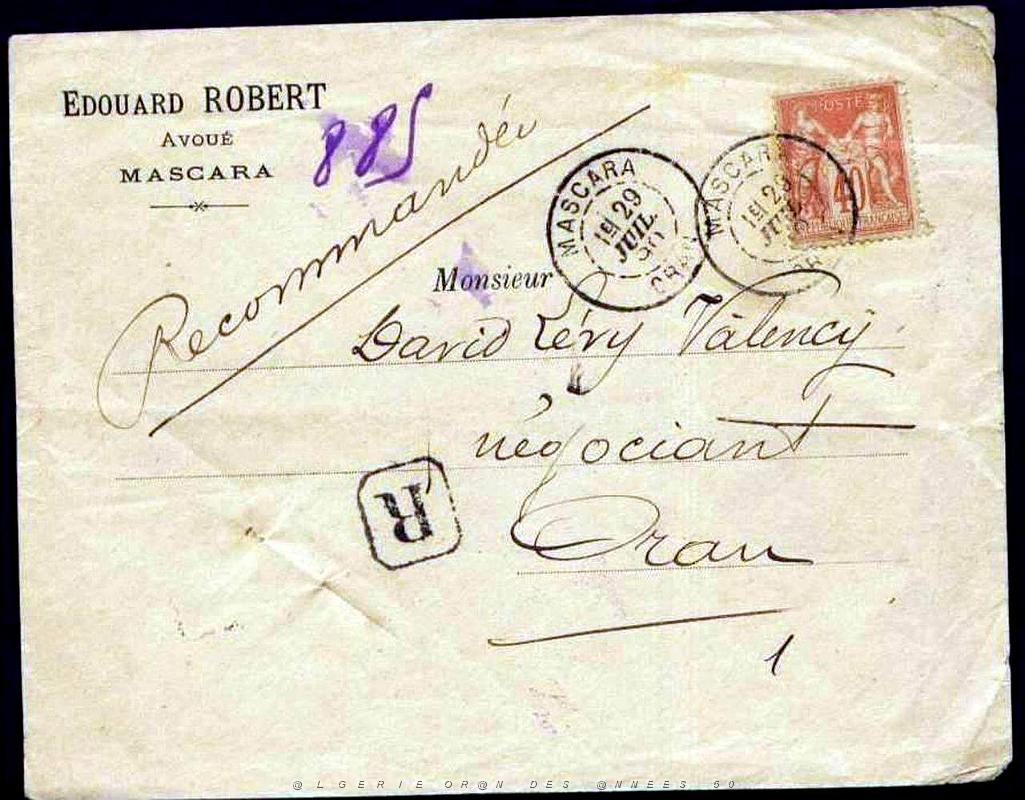 EDOUARD ROBERT
AVOUÉ
MASCARA
885
Recommandée
MASCARA
1E 29
JUIL
90
ORAN
MASCARA
1E 29
JUIL
POSTE
40
FRANÇAISE
Monsieur
David Lévy Valency
négociant
R
Oran
1
@LGERIE OR@N DES @NNEES 50